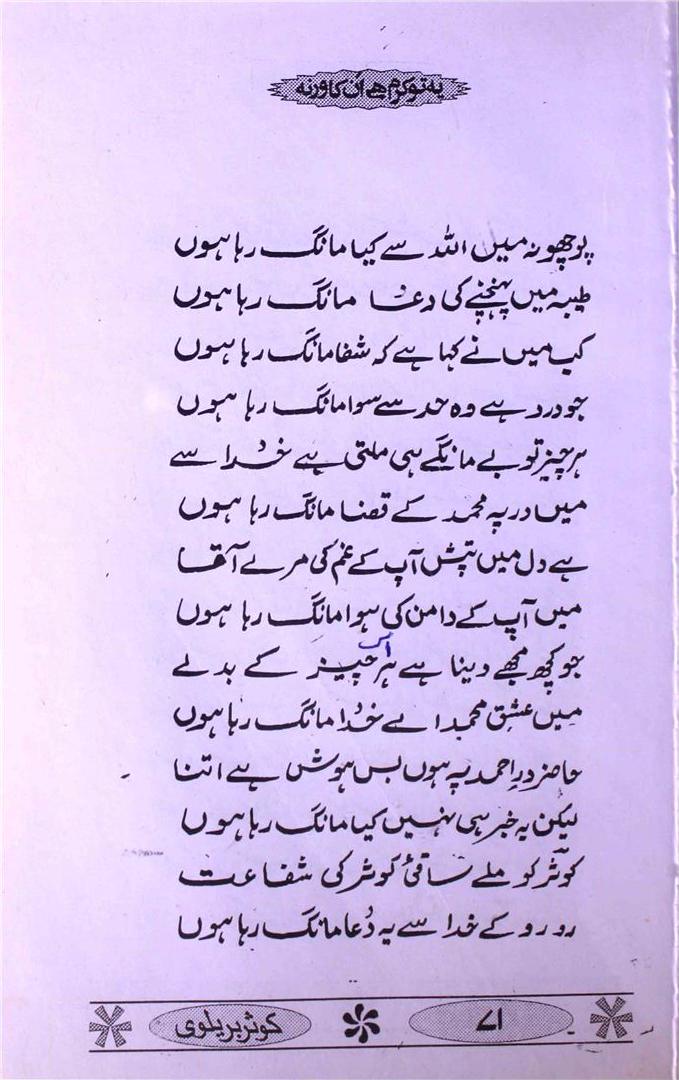 یہ تو کرم ہے اُن کا ورنہ
پوچھو نہ میں اللہ سے کیا مانگ رہا ہوں
طیبہ میں پہنچنے کی دعا مانگ رہا ہوں
کب میں نے کہا ہے کہ شفا مانگ رہا ہوں
جو درد ہے وہ حد سے سوا مانگ رہا ہوں
ہر چیز تو بے مانگے ہی ملتی ہے خُدا سے
میں در پہ محمد کے قضا مانگ رہا ہوں
ہے دل میں تپش آپ کے غم کی مرے آقا
میں آپ کے دامن کی ہوا مانگ رہا ہوں
جو کچھ مجھے دینا ہے ہر اس چیز کے بدلے
میں عشق محمد اے خُدا مانگ رہا ہوں
حاضر درِ احمد پہ ہوں بس ہوش ہے اتنا
لیکن یہ خبر ہی نہیں کیا مانگ رہا ہوں
کوثر کو ملے ساقئ کوثر کی شفاعت
رو رو کے خدا سے یہ دُعا مانگ رہا ہوں
۷۱ کوثر بریلوی